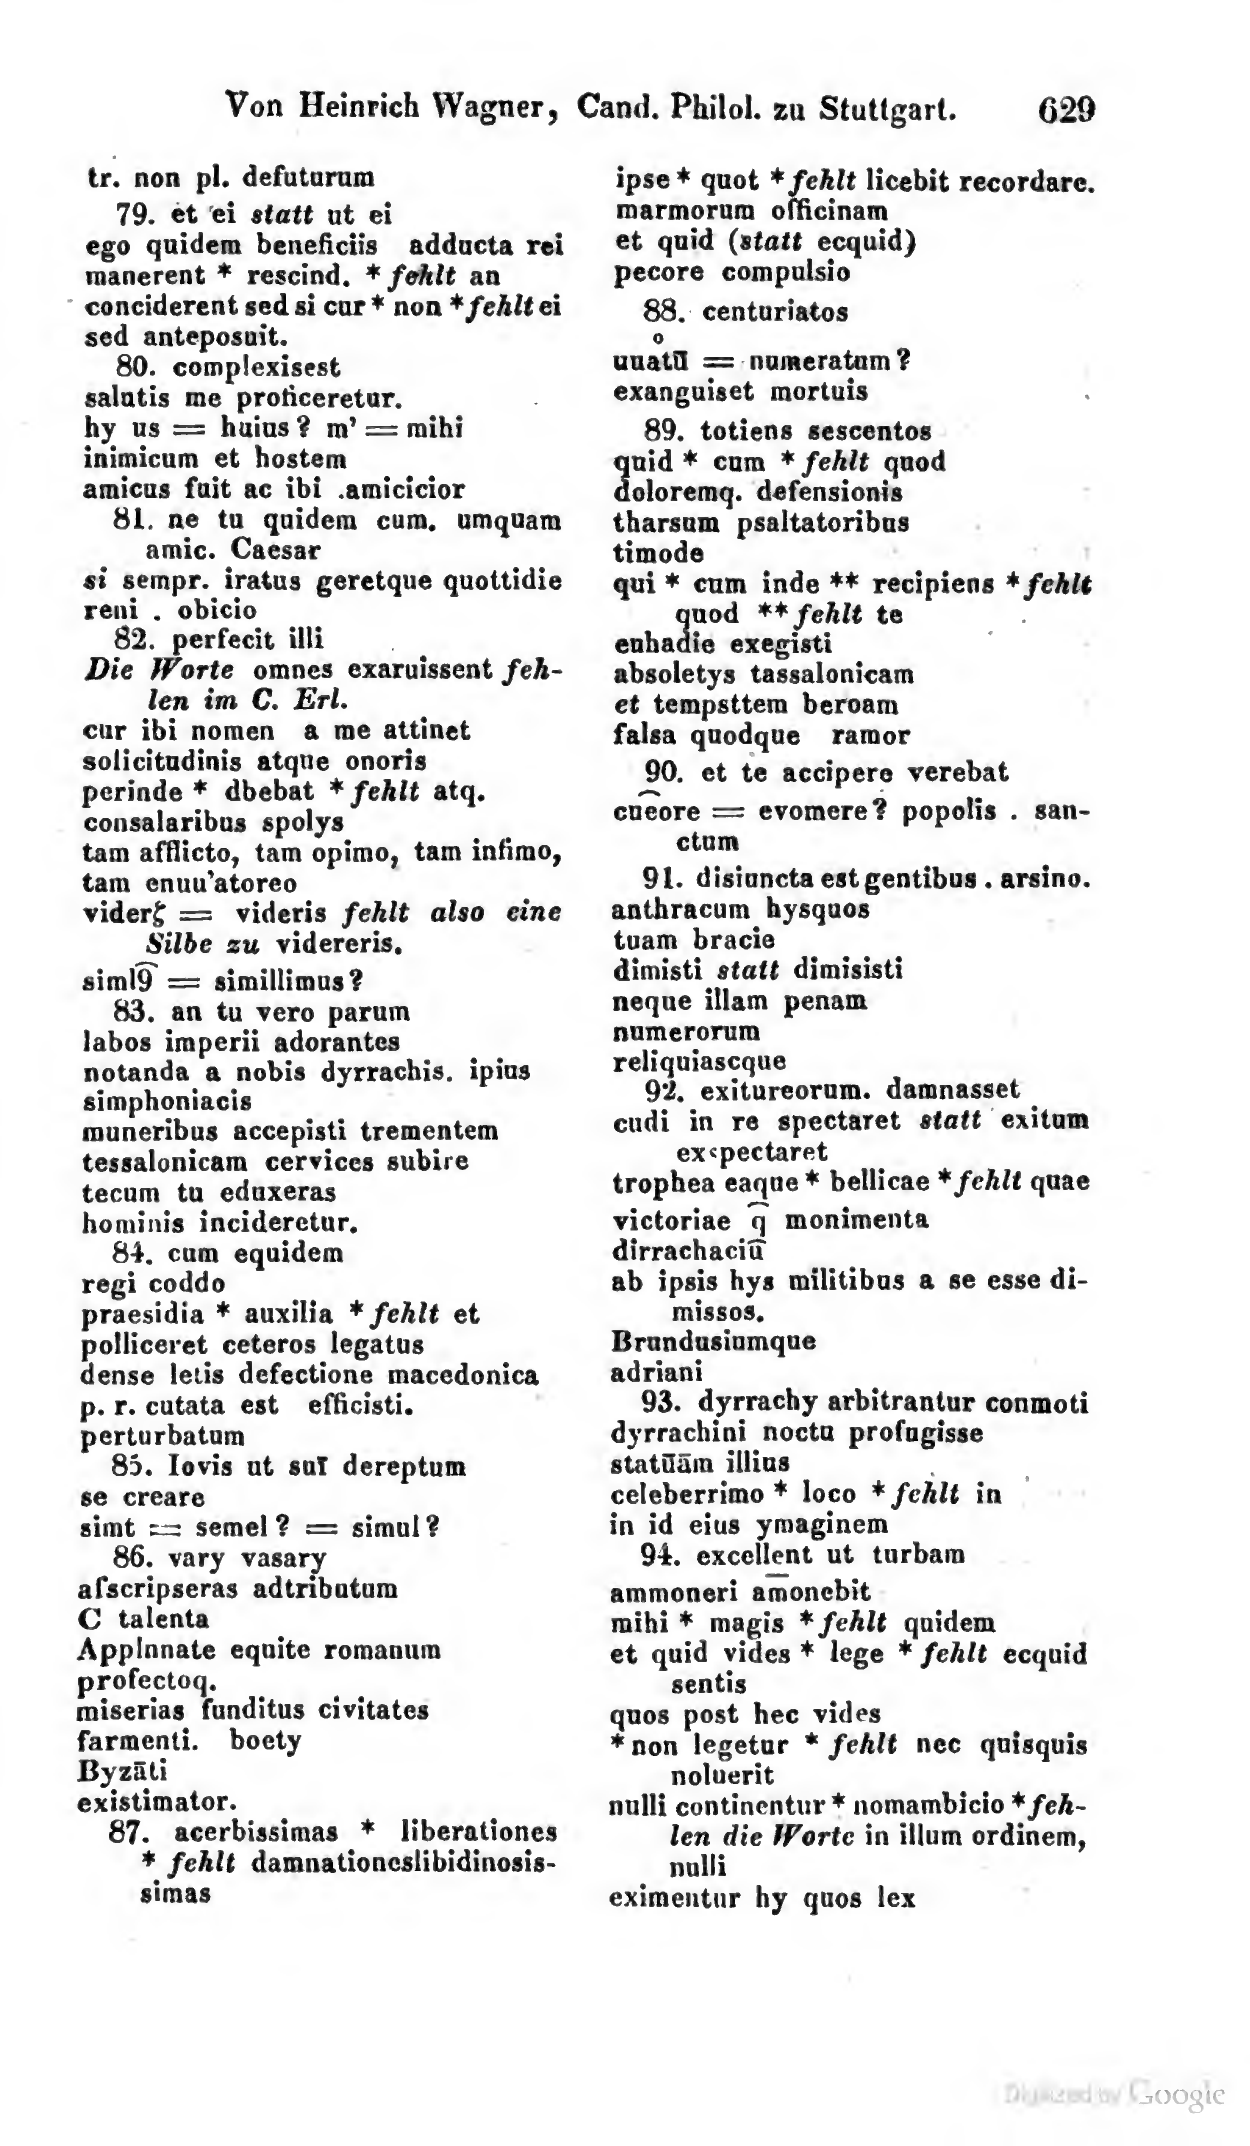 Von Heinrich Wagner, Cand. Philol. zu Stuttgart. 629
tr. non pl. defuturum
79. et ei statt ut ei
ego quidem beneficiis adducta rei
manerent * rescind. * fehlt an
conciderent sed si cur * non * fehlt ei
sed anteposuit.
80. complexisest
salutis me proficeretur.
hy us = huius? m’ = mihi
inimicum et hostem
amicus fuit ac ibi .amicicior
81. ne tu quidem cum. umquam
amic. Caesar
si sempr. iratus geretque quottidie
reni . obicio
82. perfecit illi
Die Worte omnes exaruissent feh-
len im C. Erl.
cur ibi nomen a me attinet
solicitudinis atque onoris
perinde * dbebat * fehlt atq.
consalaribus spolys
tam afflicto, tam opimo, tam infimo,
tam enuu’atoreo
viderξ = videris fehlt also eine
Silbe zu videreris.
siml9͡ = simillimus?
83. an tu vero parum
labos imperii adorantes
notanda a nobis dyrrachis. ipius
simphoniacis
muneribus accepisti trementem
tessalonicam cervices subire
tecum tu eduxeras
hominis incideretur.
84. cum equidem
regi coddo
praesidia * auxilia * fehlt et
polliceret ceteros legatus
dense letis defectione macedonica
p. r. cutata est efficisti.
perturbatum
85. Iovis ut suī dereptum
se creare
simt = semel? = simul?
86. vary vasary
afscripseras adtributum
C talenta
Applnnate equite romanum
profectoq.
miserias funditus civitates
farmenti. boety
Byzāti
existimator.
87. acerbissimas * liberationes
* fehlt damnationeslibidinosis-
simas
ipse * quot * fehlt licebit recordare.
marmorum officinam
et quid (statt ecquid)
pecore compulsio
88. centuriatos
o
uuatū = numeratum?
exanguiset mortuis
89. totiens sescentos
quid * cum * fehlt quod
doloremq. defensionis
tharsum psaltatoribus
timode
qui * cum inde ** recipiens * fehlt
quod ** fehlt te
enhadie exegisti
absoletys tassalonicam
et tempsttem beroam
falsa quodque ramor
90. et te accipere verebat
cue͡ore = evomere? popolis . san-
ctum
91. disiuncta est gentibus . arsino.
anthracum hysquos
tuam bracie
dimisti statt dimisisti
neque illam penam
numerorum
reliquiascque
92. exitureorum. damnasset
cudi in re spectaret statt exitum
exspectaret
trophea eaque * bellicae * fehlt quae
victoriae q͡ monimenta
dirrachaciū
ab ipsis hys militibus a se esse di-
missos.
Brundusiumque
adriani
93. dyrrachy arbitrantur conmoti
dyrrachini noctu profugisse
statūām illius
celeberrimo * loco * fehlt in
in id eius ymaginem
94. excellent ut turbam
ammoneri am̅onebit
mihi * magis * fehlt quidem
et quid vides * lege * fehlt ecquid
sentis
quos post hec vides
* non legetur * fehlt nec quisquis
noluerit
nulli continentur * nomambicio * feh-
len die Worte in illum ordinem,
nulli
eximentur hy quos lex
Digitized by Google